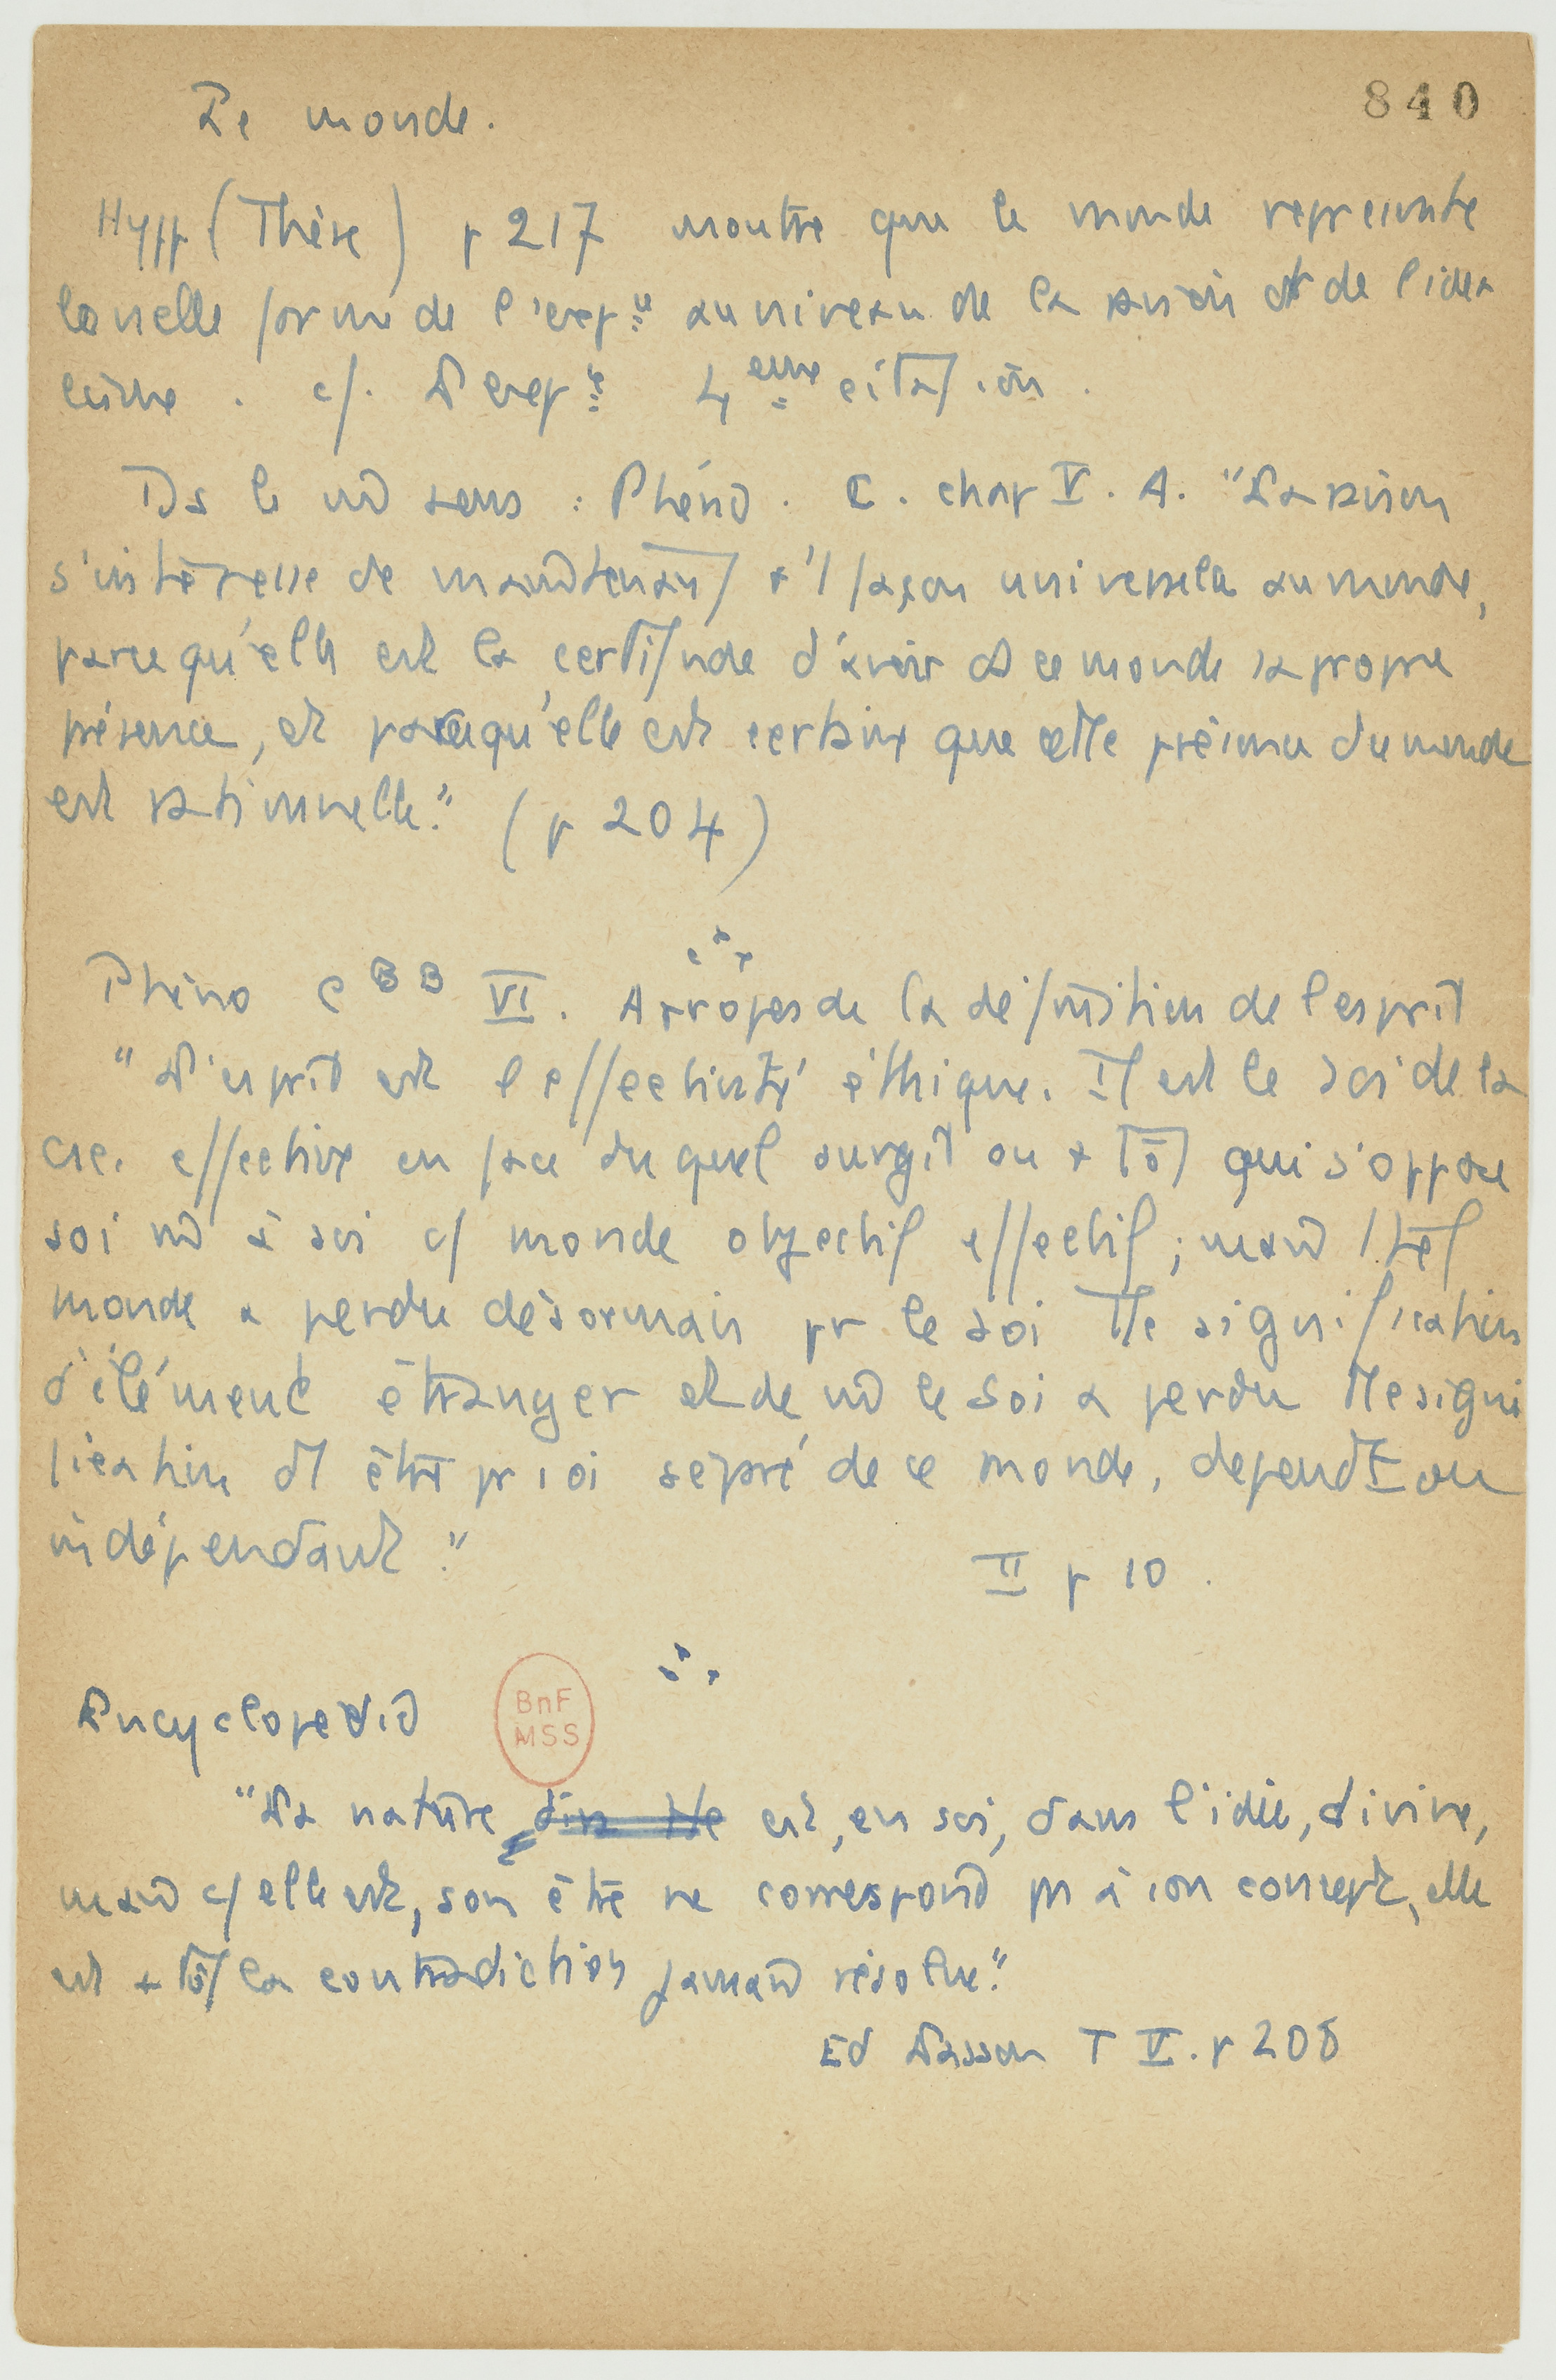 Le monde.
840
Hypp (Thèse) p 217 montre que le monde represente
la nelle forme de l'exp.ce au niveau de la raison et de l'idea
lisme. cf. L'exp.ce 4eme citation.
Ds le m̂ sens : Phéno. C. chap V. A. "La raison
s'intéresse de maintenant à façon universelle au monde,
parce qu'elle est la certitude d'avoir ds ce monde sa propre
présence, et parce qu'elle est certaine que cette présence du monde
est rationnelle." (p 204)
Phéno C BB VI. A propos de la définition de l'esprit
"L'esprit est l'effectivité éthique. Il est le soi de la
cse. effective en face duquel surgit ou + tôt qui s'oppose
soi m̂ à soi cf monde objectif effectif ; mais 1 tel
monde a perdu désormais pr le soi tte signification
d'élément étranger et de m̂ le Soi a perdu tte signi
fication d'1 être pr soi séparé de ce monde, dependt ou
indépendant."
II p 10.
Encyclopedie
"La nature est, en soi, dans l'idée, divine,
mais cf elle est, son être ne correspond pas à son concept, elle
est + tôt la contradiction jamais résolue."
Ed Lasson T V. p 208
BnF
MSS